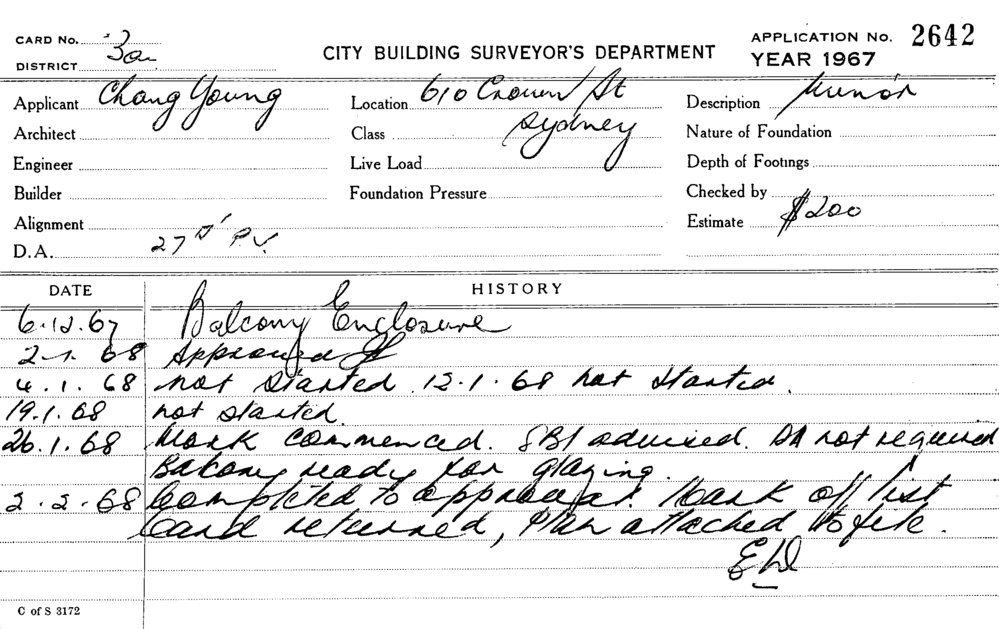 CARD No. 30a
DISTRICT
CITY BUILDING SURVEYOR'S DEPARTMENT
APPLICATION No. 2642
YEAR 1967
Applicant Chong Young
Location 610 Crown St
Sydney
Description Minor
Architect
Class
Nature of Foundation
Engineer
Live Load
Depth of Footings
Builder
Foundation Pressure
Checked by
Alignment
Estimate $200
D.A. 27
DATE
HISTORY
6.12.67 Balcony Enclosure
2.1.68 Approved
4.1.68 not started 12.1.68 not started.
19.1.68 not started.
26.1.68 Work commenced. SBI advised. DA not required
Balcony ready for glazing.
2.2.68 Completed to approval. Mark off list
Card returned, Plan attached to file.
C of S 3172